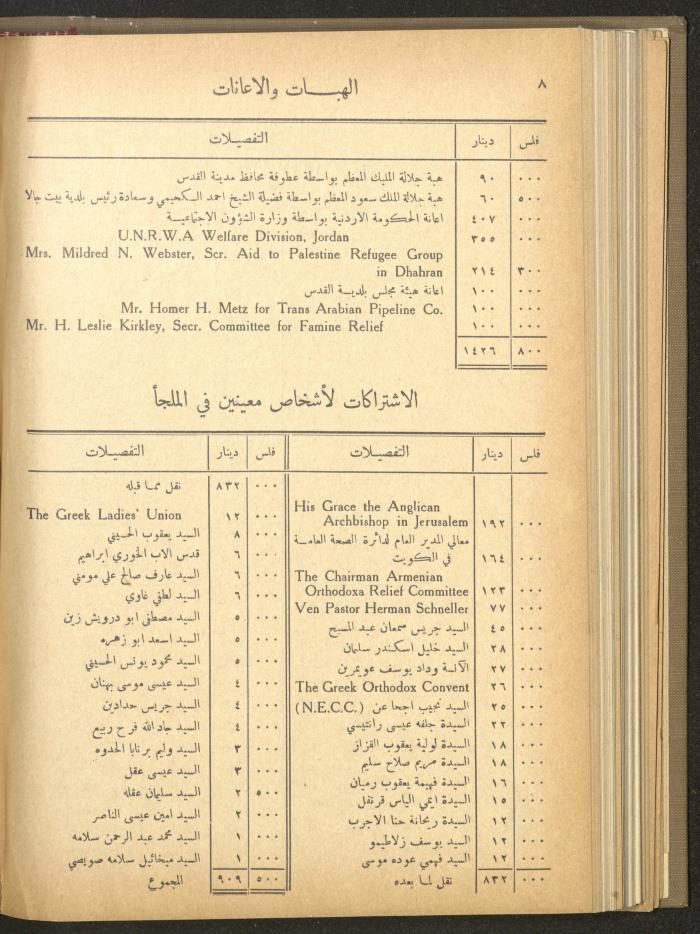 ٨
الهبـــات والاعانات
فلس دينار التفصيـلات
٠٠٠ ٩٠ هبة جلالة المليك المعظم بواسطة عطوفة محافظ مدينة القدس
٥٠٠ ٦٠ هبة جلالة الملك سعود المعظم بواسطة فضيلة الشيخ احمد الـكحيمي وسعادة رئيس بلدية بيت جالا
٠٠٠ ٤٠٧ اعانة الحكومة الاردنية بواسطة وزارة الشؤون الاجتماعيـــة
U.N.R.W.A Welfare Division, Jordan ٣٥٥ ٠٠٠
Mrs. Mildred N. Webster, Scr. Aid to Palestine Refugee Group
in Dhahran ٢١٤ ٣٠٠
٠٠٠ ١٠٠ اعانة هيئة مجلس بلديـــة القدس
Mr. Homer H. Metz for Trans Arabian Pipeline Co. ١٠٠ ٠٠٠
Mr. H. Leslie Kirkley, Secr. Committee for Famine Relief ١٠٠ ٠٠٠
٨٠٠ ١٤٢٦
الاشتراكات لأشخاص معينين في الملجأ
فلس دينار التفصيـلات
His Grace the Anglican
Archbishop in Jerusalem ١٩٢ ٠٠٠
معالي المدير العام لدائرة الصحة العامـــة
٠٠٠ ١٦٤ في الكويت
The Chairman Armenian
Orthodoxa Relief Committee ١٢٣ ٠٠٠
Ven Pastor Herman Schneller ٧٧ ٠٠٠
٠٠٠ ٤٥ السيد جريس سمعان عبد المسيح
٠٠٠ ٢٨ السيد خليل اسكندر سليمان
٠٠٠ ٢٧ الآنسة وداد يوسف عويمرين
The Greek Orthodox Convent ٢٦ ٠٠٠
٠٠٠ ٢٥ السيد نجيب اجحا عن (N.E.C.C.)
٠٠٠ ٢٢ السيدة جلفه عيسى رانتيسي
٠٠٠ ١٨ السيدة لولية يعقوب القزاز
٠٠٠ ١٨ السيدة مريم صلاح سليم
٠٠٠ ١٦ السيدة فهيمة يعقوب رميان
٠٠٠ ١٥ السيدة ايمي الياس قرنفل
٠٠٠ ١٢ السيدة ريحانة حنا الاجرب
٠٠٠ ١٢ السيد يوسف زلاطيمو
٠٠٠ ١٢ السيد فهمي عوده موسى
٠٠٠ ٨٣٢ نقل لما بعده
فلس دينار التفصيـلات
٠٠٠ ٨٣٢ نقل مما قبله
The Greek Ladies' Union ١٢ ٠٠٠
٠٠٠ ٨ السيد يعقوب الحسيني
٠٠٠ ٦ قدس الاب الخوري ابراهيم
٠٠٠ ٦ السيد عارف صالح علي مومني
٠٠٠ ٦ السيد لطفي غاوي
٠٠٠ ٥ السيد مصطفى ابو درويش زين
٠٠٠ ٥ السيد اسعد ابو زهره
٠٠٠ ٥ السيد محمود يونس الحسيني
٠٠٠ ٤ السيد عيسى موسى بهنان
٠٠٠ ٤ السيد جريس حدادين
٠٠٠ ٤ السيد جادالله فرح ربيع
٠٠٠ ٣ السيد وليم برنابا الحدوه
٠٠٠ ٣ السيد عيسى عقل
٥٠٠ ٢ السيد سليمان عقله
٠٠٠ ٢ السيد امين عيسى الناصر
٠٠٠ ١ السيد محمد عبد الرحمن سلامه
٠٠٠ ١ السيد ميخائيل سلامه صويصي
٥٠٠ ٩٠٩ المجموع